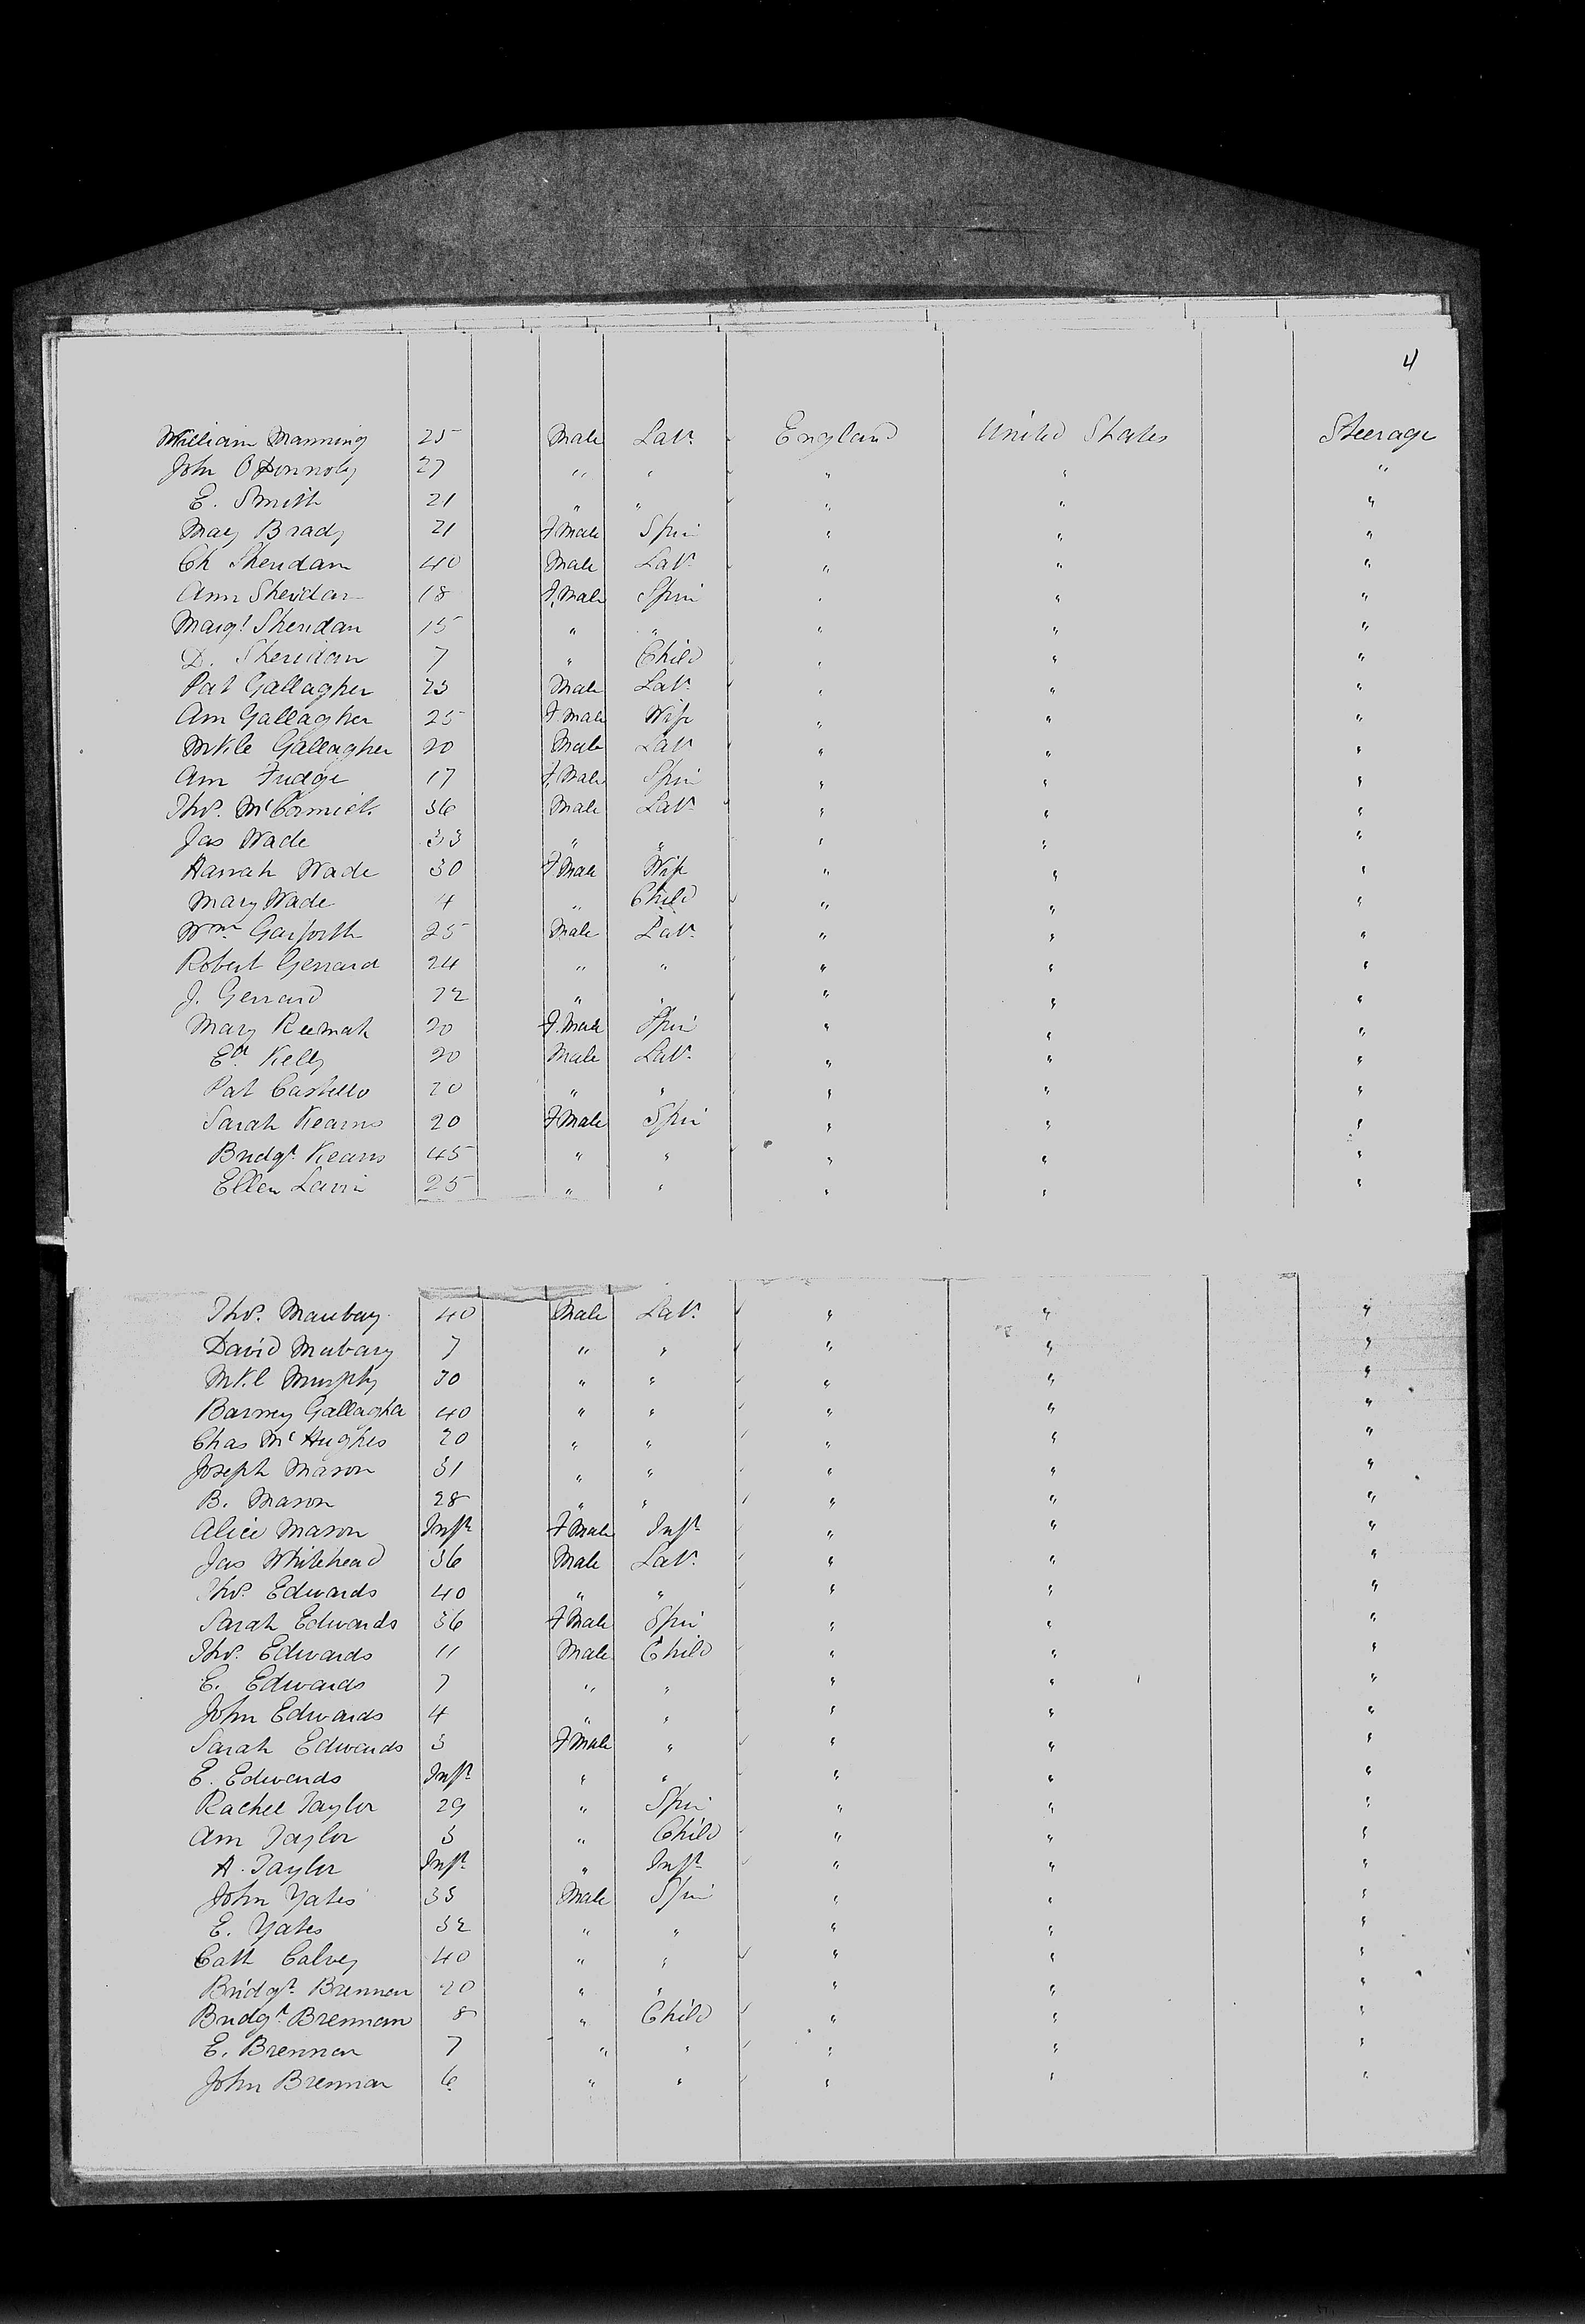 4
William Manning 25 Male Labr England United States Steerage
John O'Donnoly 27 " " " " "
E. Smith 21 " " " " "
Mary Brady 21 F.Male Spin " " "
Ch Sheridan 40 Male Labr " " "
Ann Sheridan 18 F.Male Spin " " "
Margt Sheridan 15 " " " " "
D. Sheridan 7 " Child " " "
Pat Gallagher 23 Male Labr " " "
Ann Gallagher 25 F.Male Wife " " "
Mkle Gallagher 20 Male Labr " " "
Ann Fudge 17 F.Male Spin " " "
Thos. McCormick 36 Male Labr " " "
Jas Wade 33 " " " " "
Hannah Wade 30 F.Male Wife " " "
Mary Wade 4 " Child " " "
Wm Garforth 25 Male Labr " " "
Robert Gerrard 24 " " " " "
J. Gerrard 22 " " " " "
Mary 20 F.Male Spin " " "
Ed. Kelly 20 Male Labr " " "
Pat Castello 20 " " " " "
Sarah Kearns 20 F.Male Spin " " "
Bridgt Kearns 45 " " " " "
Ellen 25 " " " " "
Thos. 40 Male Labr " " "
David 7 " " " " "
Mkl Murphy 30 " " " " "
Barney Gallagher 40 " " " " "
Chas McHughes 20 " " " " "
Joseph Mason 31 " " " " "
B. Mason 28 " " " " "
Alice Mason Inft F.Male Inft " " "
Jas Whitehead 36 Male Labr " " "
Thos. Edwards 40 " " " " "
Sarah Edwards 36 F.Male Spin " " "
Thos. Edwards 11 Male Child " " "
E. Edwards 7 " " " " "
John Edwards 4 " " " " "
Sarah Edwards 3 F.Male " " " "
E. Edwards Inft " " " " "
Rachel Taylor 29 " Spin " " "
Ann Taylor 3 " Child " " "
A. Taylor Inft " Inft " " "
John Yates 33 Male Spin " " "
E. Yates 32 " " " " "
Cath Calvey 40 " " " " "
Bridgt. Brennan 20 " " " " "
Bridgt Brennan 8 " Child " " "
E. Brennan 7 " " " " "
John Brennan 6 " " " " "